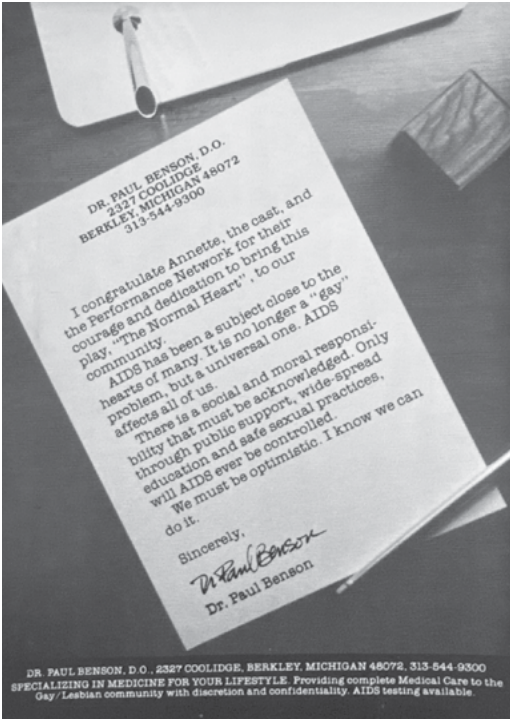 DR. PAUL BENSON, D.O.
2327 COOLIDGE
BERKLEY, MICHIGAN 48072
313-544-9300
I congratulate Annette, the cast, and
the Performance Network for their
courage and dedication to bring this
play, "The Normal Heart", to our
community.
AIDS has been a subject close to the
hearts of many. It is no longer a "gay"
problem, but a universal one. AIDS
affects all of us.
There is a social and moral responsi-
bility that must be acknowledged. Only
through public support, wide-spread
education and safe sexual practices,
will AIDS ever be controlled.
We must be optimistic. I know we can
do it.
Sincerely,
Dr Paul Benson
Dr. Paul Benson
DR. PAUL BENSON, D.O., 2327 COOLIDGE, BERKLEY, MICHIGAN 48072, 313-544-9300
SPECIALIZING IN MEDICINE FOR YOUR LIFESTYLE. Providing complete Medical Care to the
Gay/Lesbian community with discretion and confidentiality. AIDS testing available.